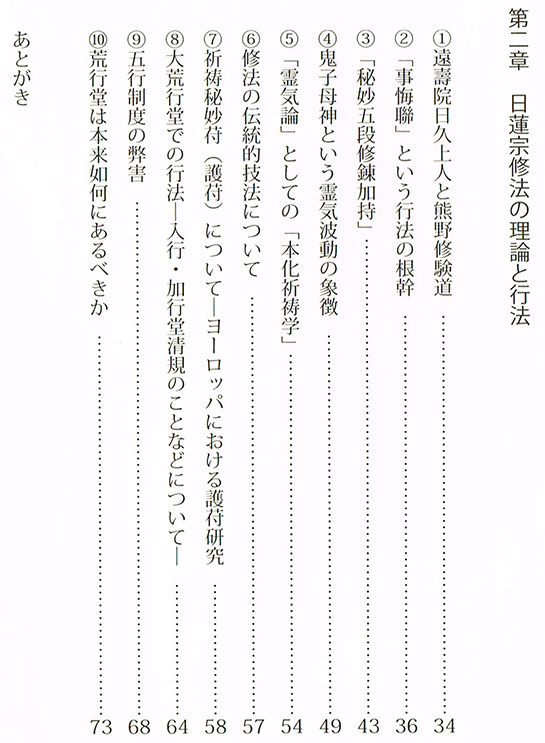 第二章 日蓮宗修法の理論と行法
①遠壽院日久上人と熊野修験道……34
②「事悔聯」という行法の根幹……36
③「秘妙五段修錬加持」……43
④鬼子母神という霊気波動の象徴……49
⑤「霊気論」としての「本化祈祷学」……54
⑥修法の伝統的技法について……57
⑦祈祷秘妙符（護苻）について―ヨーロッパにおける護苻研究……58
⑧大荒行堂での行法―入行・加行堂清規のことなどについて―……64
⑨五行制度の弊害……68
⑩荒行堂は本来如何にあるべきか……73
あとがき